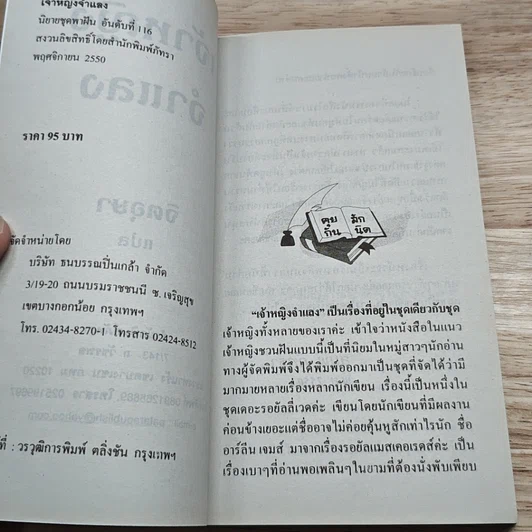 เจ้าหญิงจำแลง
นิยายชุดพาฝัน อันดับที่ 116
สงวนลิขสิทธิ์โดยสำนักพิมพ์ภัทรา
พฤศจิกายน 2550
ราคา 95 บาท
จัดจำหน่ายโดย
บริษัท ธนบรรณปิ่นเกล้า จำกัด
3/19-20 ถนนบรมราชชนนี ซ. เจริญสุข
เขตบางกอกน้อย กรุงเทพฯ
โทร. 02434-8270-1 โทรสาร 02424-8512
ที่ : วรวุฒิการพิมพ์ ตลิ่งชัน กรุงเทพฯ
คุย
กัน
สัก
นิด
"เจ้าหญิงจำแลง" เป็นเรื่องที่อยู่ในชุดเดียวกับชุด
เจ้าหญิงทั้งหลายของเราค่ะ เข้าใจว่าหนังสือในแนว
เจ้าหญิงชวนฝันแบบนี้เป็นที่นิยมในหมู่สาวๆนักอ่าน
ทางผู้จัดพิมพ์จึงได้พิมพ์ออกมาเป็นชุดที่จัดได้ว่ามี
มากมายหลายเรื่องหลากนักเขียน เรื่องนี้เป็นหนึ่งใน
ชุดเดอะรอยัลลี่เวดค่ะ เขียนโดยนักเขียนที่มีผลงาน
ค่อนข้างเยอะแต่ชื่ออาจไม่ค่อยคุ้นหูสักเท่าไรนัก ชื่อ
อาร์ลีน เจมส์ มาจากเรื่องรอยัลแมสเคอเรดส์ค่ะ เป็น
เรื่องเบาๆที่อ่านพอเพลินๆในยามที่ต้องนั่งพับเพียบ